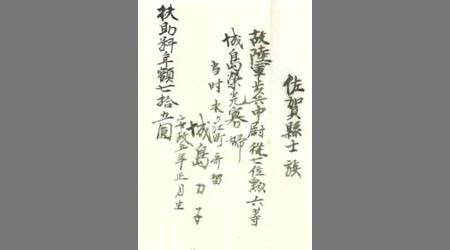 佐賀縣士族
故陸軍歩兵中尉従七位勲六等
城島榮光寡婦
当时水ヶ江町寄留
城島力子
安政五年正月生
扶助料年額七拾五圓